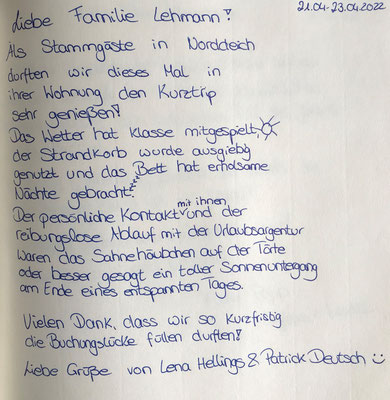 21.04-23.04.2022
Liebe Familie Lehmann!
Als Stammgäste in Norddeich
durften wir dieses Mal in
ihrer Wohnung den Kurztrip
sehr genießen!
Das Wetter hat klasse mitgespielt,
der Strandkorb wurde ausgiebig
genutzt und das Bett hat erholsame
Nächte gebracht.
Der persönliche Kontakt mit ihnen und der
reibungslose Ablauf mit der Urlaubsargentur
waren das Sahnehäubchen auf der Torte
oder besser gesagt ein toller Sonnenuntergang
am Ende eines entspannten Tages.
Vielen Dank, dass wir so kurzfristig
die Buchungslücke füllen durften!
Liebe Grüße von Lena Hellings & Patrick Deutsch ☺